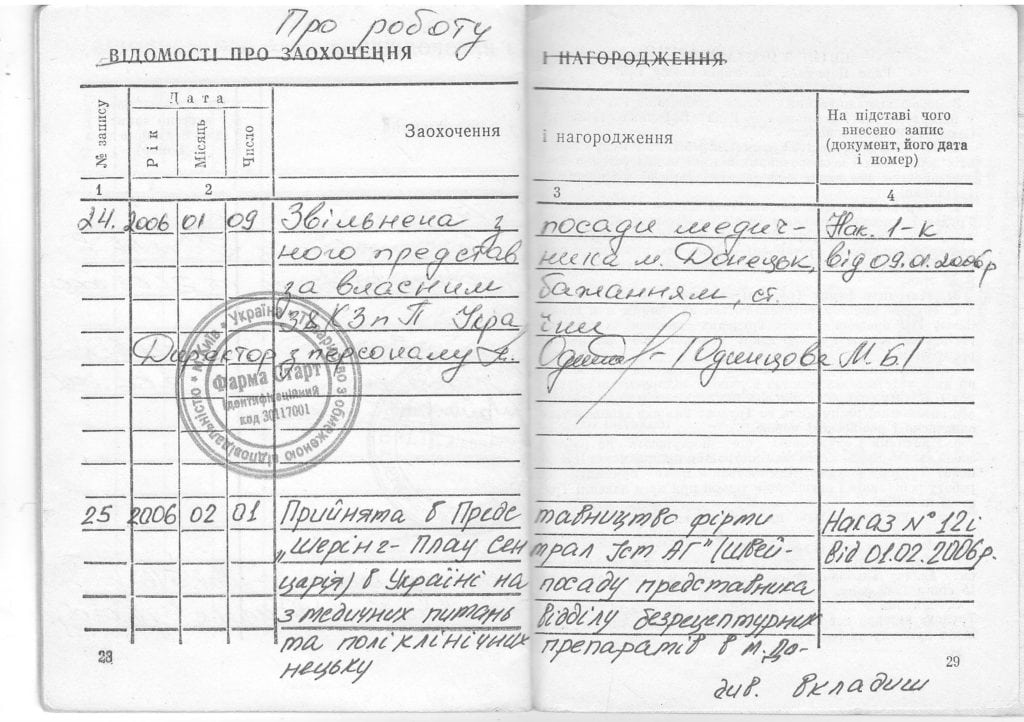 Про роботу
ВІДОМОСТІ ПРО ЗАОХОЧЕННЯ І НАГОРОДЖЕННЯ
№ запису
Дата
Рік
Місяць
Число
Заохочення і нагородження
На підставі чого
внесено запис
(документ, його дата
і номер)
1 2 3 4
24. 2006 01 09 Звільнена з посади медич- Нак. 1-к
ного представ ника м. Донецьк, від 09.01.2006р
за власним бажанням, ст.
38 КЗпП Укра їни
Директор з персоналу /Одинцова М.Б./
* м.Київ * Україна * Товариство з обмеженою відповідальністю
Фарма Старт
Ідентифікаційний
код 30117001
25 2006 02 01 Прийнята в Предс тавництво фірми Наказ № 12і
„Шерінг-Плау Сен трал Іст АГ" (Швей- від 01.02.2006р.
царія) в Україні на посаду представника
з медичних питань відділу безрецептурних
та поліклінічних препаратів в м. До-
нецьку
28 29
див. вкладиш